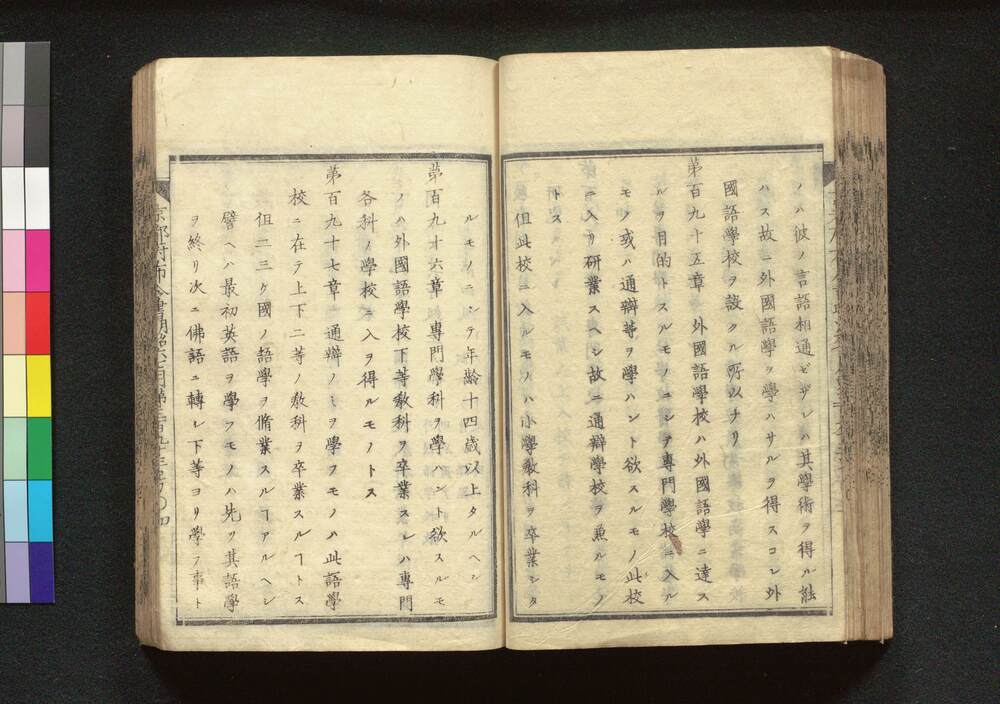 ノハ彼ノ言語相通ゼザレハ其學術ヲ得ル能
ハス故ニ外國語學ヲ學ハサルヲ得スコレ外
國語學校ヲ設クル所以ナリ
第百九十五章 外國語學校ハ外國語學ニ達ス
ルヲ目的トスルモノニシテ專門學校ニ入ル
モノ或ハ通辯等ヲ學ハント欲スルモノ此校
ニ入リ研業スヘシ故ニ通辯學校ヲ兼ルモノ
トス
但此校ニ入ルモノハ小學敎科ヲ卒業シタ
ルモノニシテ年齡十四歲以上タルヘシ
第百九十六章 專門學科ヲ學ハント欲スルモ
ノハ外國語學校下等敎科ヲ卒業スレハ專門
各科ノ學校ニ入ヲ得ルモノトス
第百九十七章 通辯ノミヲ學フモノハ此語學
校ニ在テ上下二等ノ敎科ヲ卒業スルヿトス
但二三ケ國ノ語學ヲ脩業スルヿアルヘシ
譬ヘハ最初英語ヲ學フモノハ先ツ其語學
ヲ終リ次ニ佛語ニ轉シ下等ヨリ學フ事ト
京都府布令書明治六年